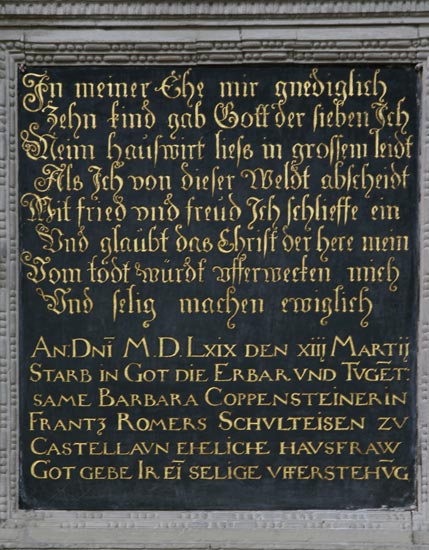 In meiner Ehe mir gnediglich
Zehn kind gab Gott der sieben Ich
Meim hauswirt lies in grossem leidt
Als Ich von dieser Weldt abscheidt
Mit fried vnd freud Ich schlieffe ein
Vnd glaubt das Christ der here mein
Vom todt würdt vfferwecken mich
Vnd selig machen ewiglich
AN: DNĪ M.D.LXIX DEN XIIJ MARTIJ
STARB IN GOT DIE ERBAR VND TVGĒT:
SAME BARBARA COPPENSTEINERIN
FRANTZ ROMERS SCHVLTEISEN ZV
CASTELLAVN EHELICHE HAVSFRAW
GOT GEBE IR EĪ SELIGE VFFERSTEHV̄G